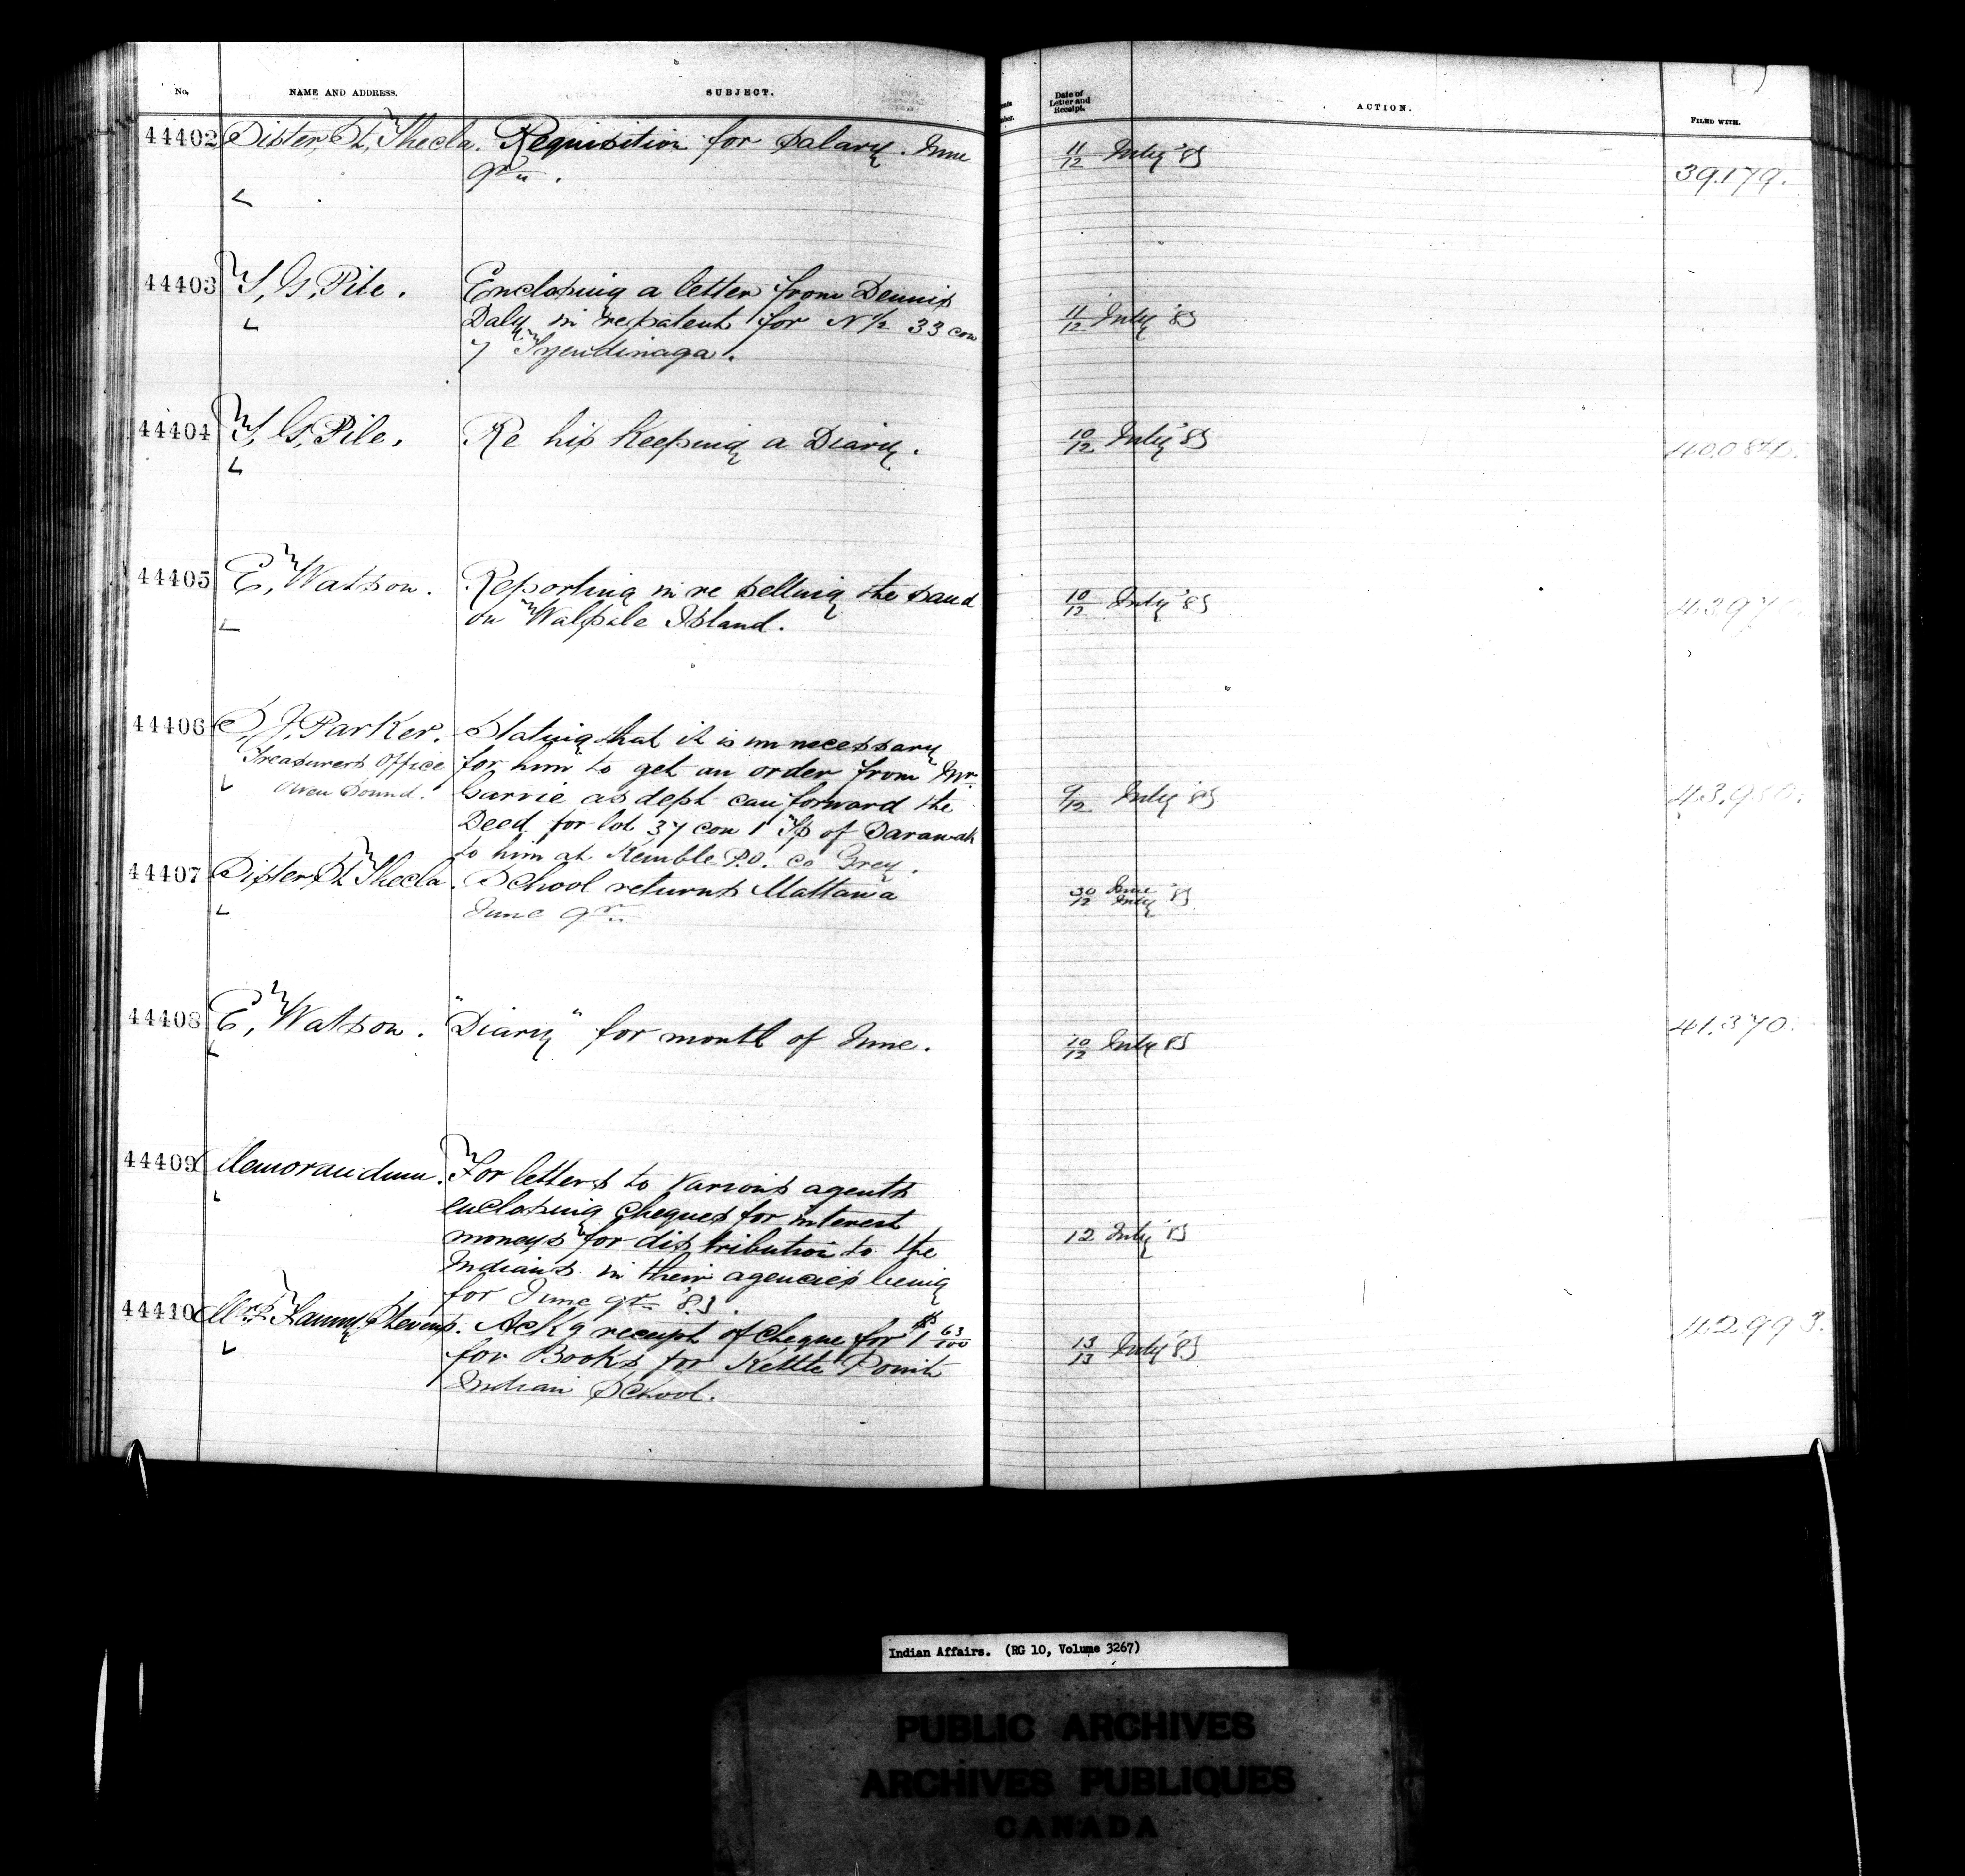 No.
NAME AND ADDRESS.
SUBJECT.
Date of
Letter and
Receipt.
ACTION.
FILED WITH.
44402 Sister St. Thecla. Requisition for Salary. June
qr.
11/12 July '83
39.179.
44403 T. G. Pile. Enclosing a letter from Dennis
Daly in re patent for N 1/2 33 con
7 Tyendinaga.
11/12 July '83
44404 T. G. Pile. Re his Keeping a Diary.
10/12 July '83
44405 E. Watson. Reporting in re selling the sand
on Walpole Island.
10/12 July '83
44406 S. J. Parker. Stating that it is unnecessary
Treasurers Office for him to get an order from Mr.
Owen Sound. Garvie as dept can forward the
Deed for lot 37 con 1 Tp of Sarawak
to him at Kemble P.O. Co Grey.
9/12 July '83
44407 Sister St. Thecla. School returns Mattawa
June qr
30/12 June/July '83
44408 E. Watson. "Diary" for month of June.
10/12 July 83
41.370.
44409 Memorandum. For letters to various agents
enclosing cheques for interest
moneys for distribution to the
Indians in their agencies being
for June qr '83.
12 July '83
44410 Mrs. Fanny Stevens. Ack g receipt of Cheque for $1 63/100
for Books for Kettle Point
Indian School.
13/13 July '83
42.993.
Indian Affairs. (RG 10, Volume 3267)
PUBLIC ARCHIVES
ARCHIVES PUBLIQUES
CANADA